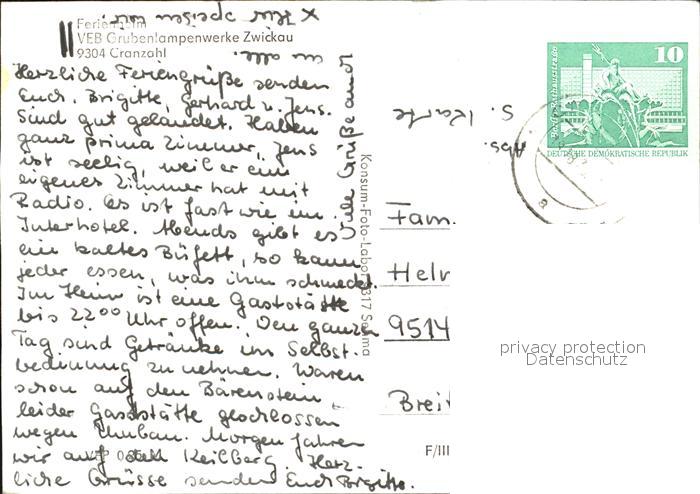 Ferienheim
VEB Grubenlampenwerke Zwickau
9304 Cranzahl
Herzliche Feriengrüße senden
Euch, Brigitte, Gerhard u. Jens.
Sind gut gelandet. Haben
ganz prima Zimmer, Jens
ist seelig, weil er ein
eigenes Zimmer hat mit
Radio. Es ist fast wie im
Interhotel. Abends gibt es
ein kaltes Büfett, so kann
jeder essen, was ihm schmeckt.
Im Heim ist eine Gaststätte
bis 22 00 Uhr offen. Den ganzen
Tag sind Getränke in Selbst-
bedinung zu nehmen. Waren
schon auf den Bärenstein
leider Gaststätte geschlossen
wegen Umbau. Morgen fahren
wir auf den Keilberg. Herz-
liche Grüsse senden Euch Brigitte.
Viele Grüße auch
an alle.
Konsum-Foto-Labor
F/III
Abs. s. Karte
10
DEUTSCHE DEMOKRATISCHE REPUBLIK
Fam.
Helm
9514
Breit
privacy protection
Datenschutz